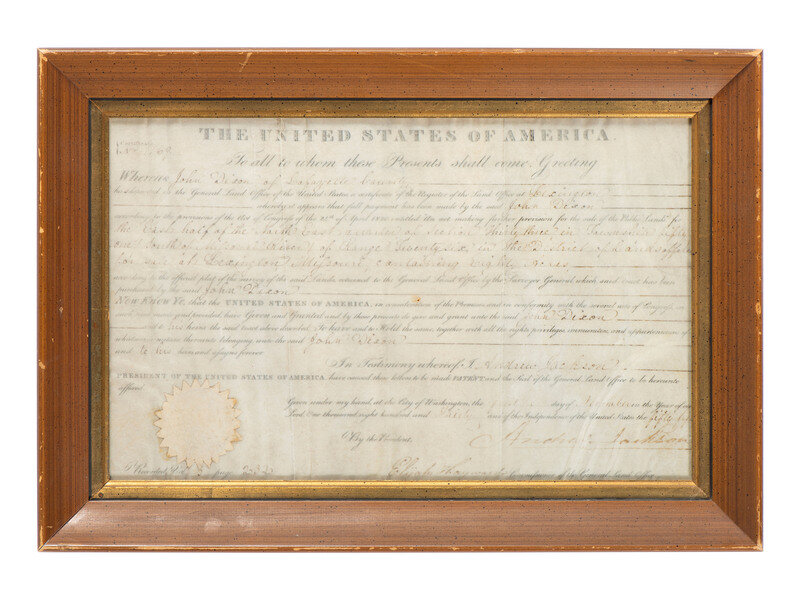 THE UNITED STATES OF AMERICA.
To all to whom these Presents shall come, Greeting
Whereas John Dixon of Lafayette County
in the General Land Office of the United States a certificate of the Register of the Land Office at Lexington
whereby it appears that full payment has been made by the said John Dixon
according to the provisions of the Act of Congress of the 24th of April 1820 entitled An act making further provision for the sale of the Public Lands for
the East half of the North East quarter of section Thirty three in Township
of Range Twenty six in the District of Lands offered
for sale at Lexington Missouri, containing Eighty acres
according to the official plat of the survey of the said Lands returned to the General Land Office by the Surveyor General which said tract has been
purchased by the said John Dixon
NOW KNOW YE, that the UNITED STATES OF AMERICA, in consideration of the Premises and in conformity with the several acts of Congress
in such case made and provided, have Given and Granted and by these presents do give and grant unto the said John Dixon
and to his heirs the said tract above described; To have and to Hold the same together with all the rights, privileges, immunities, and appurtenances of
whatsoever nature thereunto belonging unto the said John Dixon
and to his heirs and assigns forever
In Testimony whereof I Andrew Jackson
PRESIDENT OF THE UNITED STATES OF AMERICA, have caused these Letters to be made PATENT and the Seal of the General Land Office to be hereunto
affixed.
Given under my hand, at the City of Washington, the day of in the Year of our
Lord, One thousand eight hundred and Thirty and of the Independence of the United States the fifty
By the President. Andrew Jackson
Recorded, Vol. page Commissioner of the General Land Office